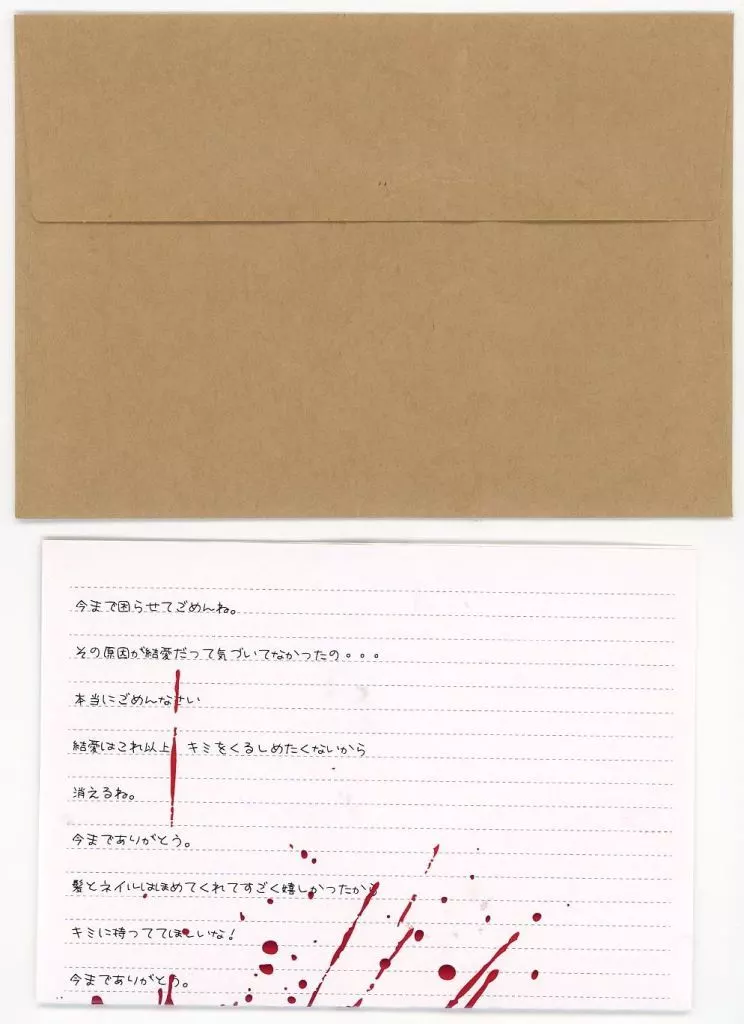 今まで困らせてごめんね。
その原因が結愛だって気づいてなかったの・・・
本当にごめんなさい
結愛はこれ以上 キミをくるしめたくないから
消えるね。
今までありがとう。
髪とネイルはほめてくれてすごく嬉しかったから
キミに持っててほしいな！
今までありがとう。